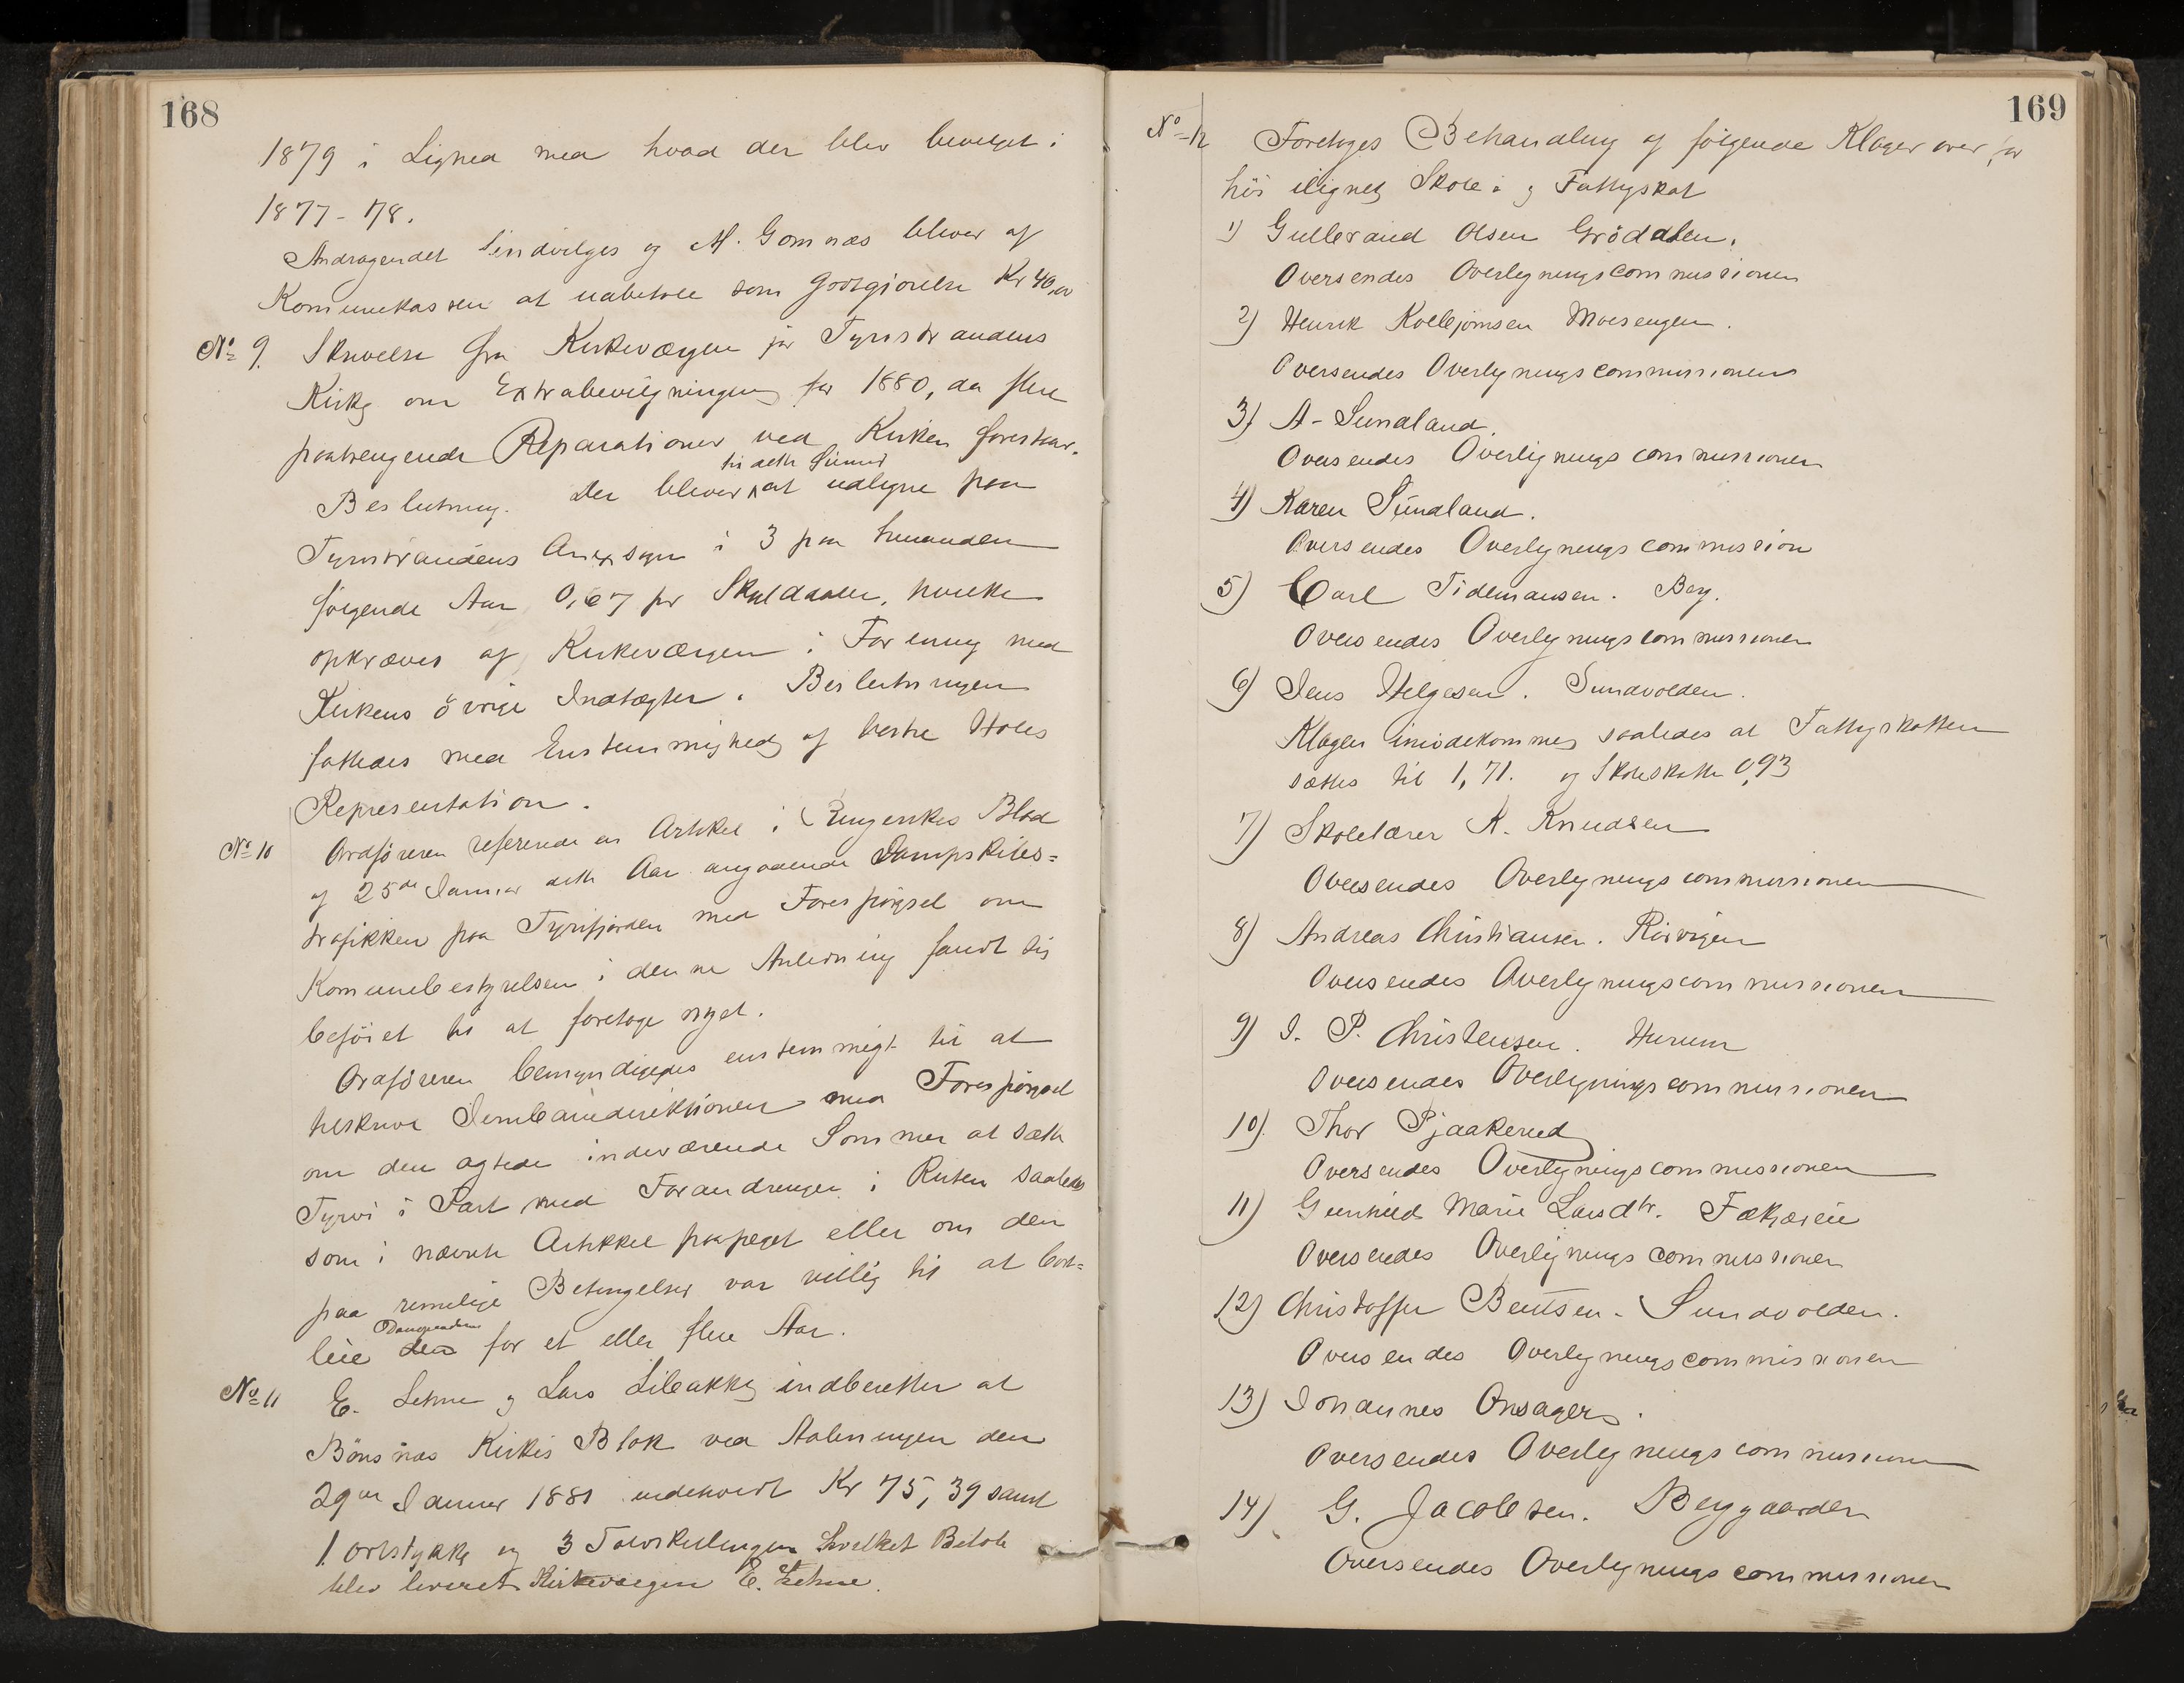 168
1879 i Lighed med hvad der blev bevilget i
1877-78.
Andragendet indvilges og M. Gomnæs bliver af
Komunekassen at udbetale som Godtgjörelse Kr 40,00
No 9. Skrivelse fra Kirkeværgen for Tyristrandens
Kirke om Extrabevilgninger for 1880, da flere
paatrengende Reparationer ved Kirken forestaar.
Beslutning. Der bliver til dette Öiemed at udligne paa
Tyristrandens Anexsogn i 3 paa hinanden
fölgende Aar 0,67 pr Skylddaler, hvilke
opkræves af Kirkeværgen i Forening med
Kirkens övrige Indtægter. Beslutningen
fattedes med Enstemmighed af Hole
Representation.
No 10 Ordföreren refererede en Artikel i Ringerikes Blad
af 25de Januar dette Aar angaaende Dampskibs=
trafikken paa Tyrifjorden med Forespörgsel om
Komunebestyrelsen i denne Anledning fandt sig
beföiet til at foretage noget.
Ordföreren bemyndigedes enstemmigt til at
tilskrive Jernbanedirektionen med Forespörgsel
om den agtede indeværende Sommer at sætte
Tyrvi i Fart med Forandringer i Ruten saaledes
som i nævnte Artikkel paapeget eller om den
paa rimelige Betingelser var villig til at bort=
leie den Dampenden for et eller flere Aar.
No 11 E. Lehne og Lars Libakke indberetter at
Bönsnæs Kirkes Blok ved Aabningen den
29de Januar 1881 indeholdt Kr 75,39 samt
1 Ortstykke og 3 Toldskillinger hvilket Belöb
blev leveret Kirkeværgen E. Lehne.
169
No 12 Foretoges Behandling af fölgende Klager over for
höi ilignet Skole- og Fattigskat
1) Gulbrand Olsen Gröddalen.
Oversendes Overligningscommissionen
2) Henrik Kolbjörnsen Moesengen.
Oversendes Overligningscommissionen
3) A. Sundland.
Oversendes Overligningscommissionen
4) Karen Sundland.
Oversendes Overligningscommission
5) Carl Tidemansen. Berg.
Oversendes Overligningscommissionen
6) Jens Helgesen. Sundvolden.
Klagen imödekommes saaledes at Fattigskatten
sættes til 1,71. og Skoleskatten 0,93
7) Skolelærer K. Knudsen
Oversendes Overligningscommissionen
8) Andreas Christiansen. Rörvigen
Oversendes Overligningscommissionen
9) I. P. Christensen. Hurum
Oversendes Overligningscommissionen
10). Thor Pjaakerud
Oversendes Overligningscommissionen
11) Gunhild Marie Larsdtr. Fækjæreie
Oversendes Overligningscommissionen
12) Christoffer Bentsen - Sundvolden.
Oversendes Overligningscommissionen
13) Johannes Onsager.
Oversendes Overligningscommissionen
14) G. Jacobsen. Berggaarden
Oversendes Overligningscommissionen